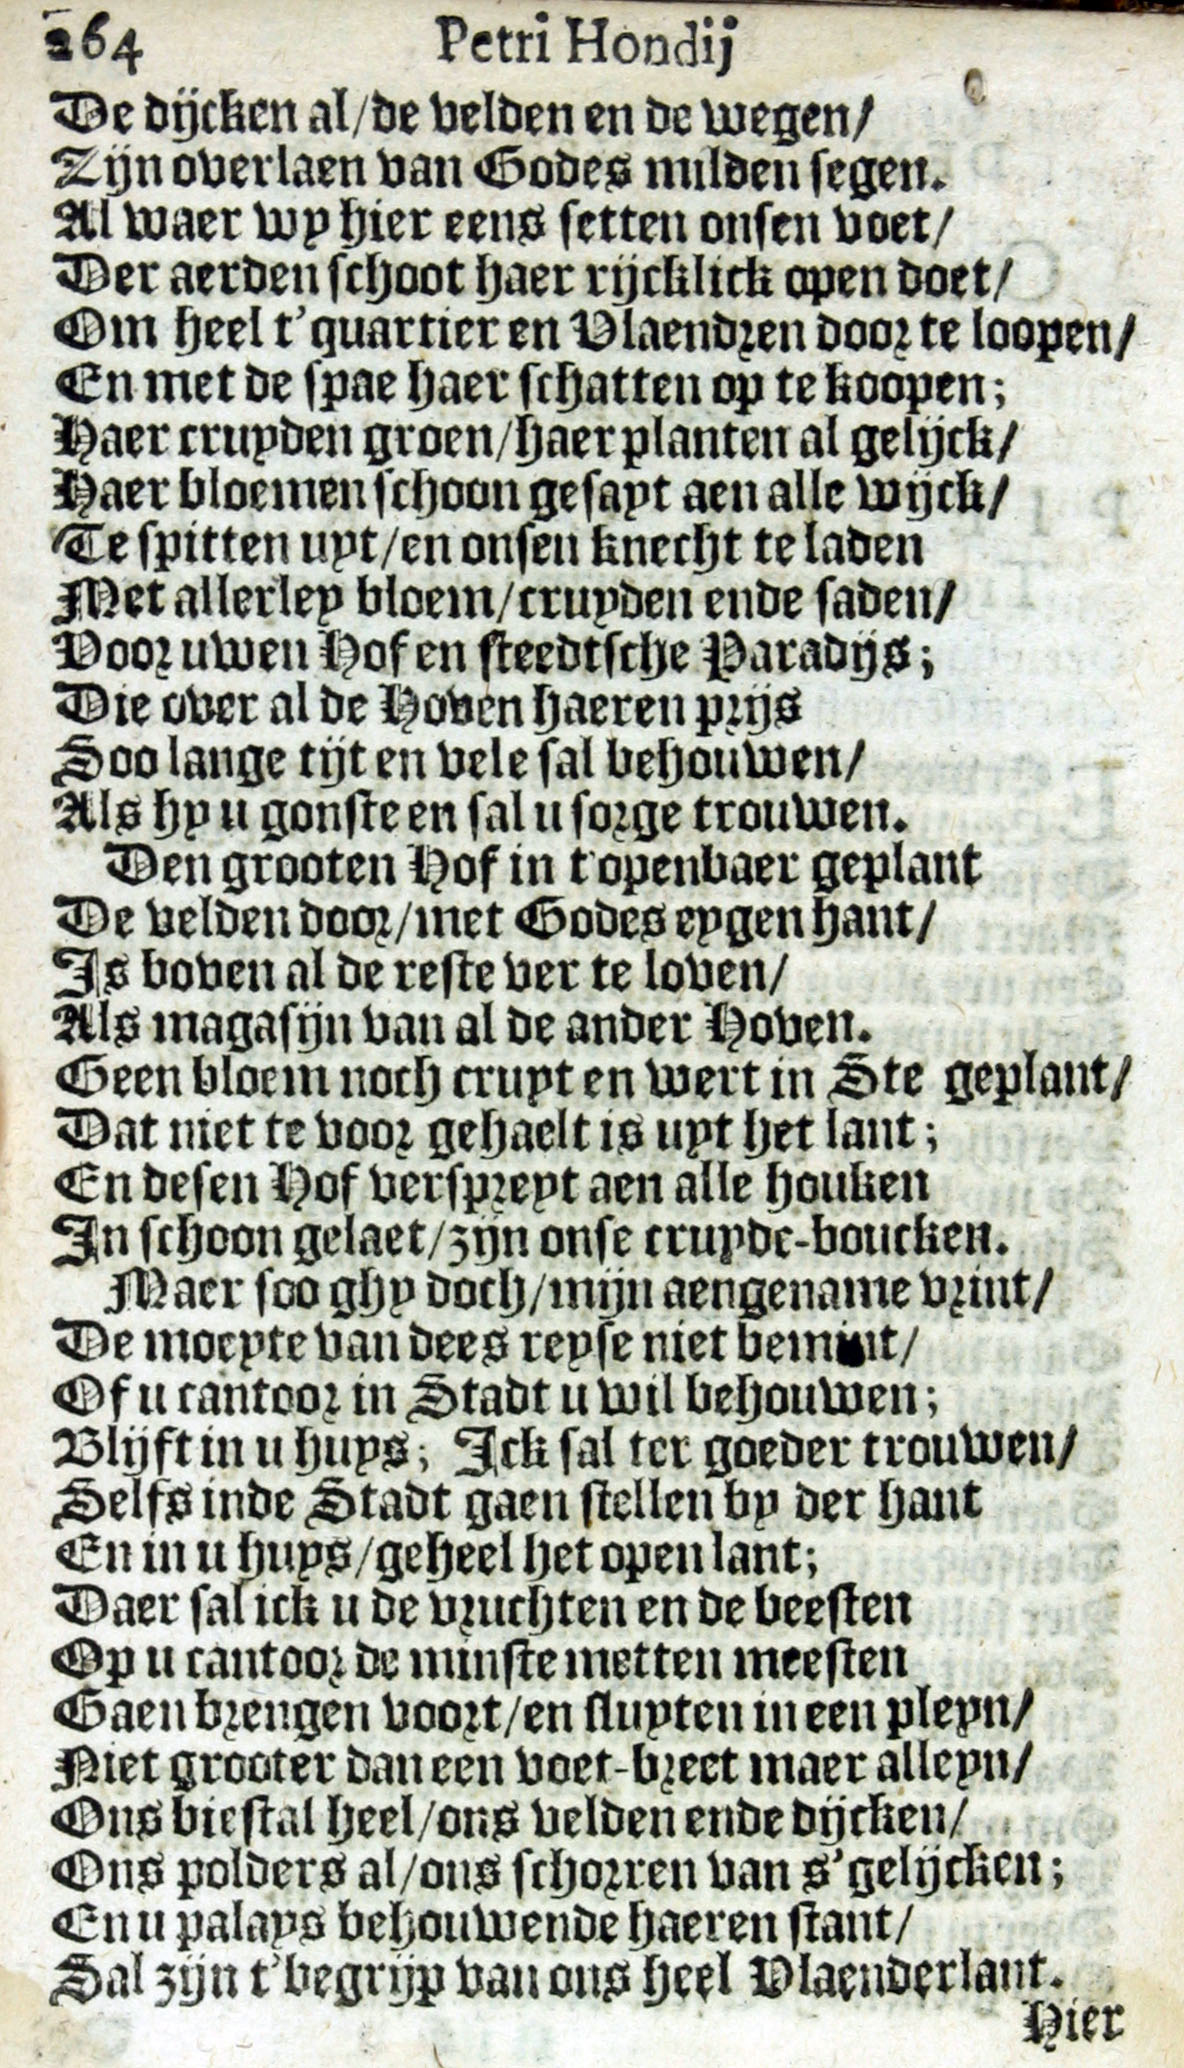 264 Petri Hondij
De dijcken al/de velden en de wegen/
Zijn overlaen van Godes milden segen.
Al waer wy hier eens setten onsen voet/
Der aerden schoot haer rijcklick open doet/
Om heel t'quartier en Vlaendren door te loopen/
En met de spae haer schatten op te koopen;
Haer cruyden groen/haer planten al gelijck/
Haer bloemen schoon gesayt aen alle wijck/
Te spitten uyt/en onsen knecht te laden
Met allerley bloem/cruyden ende saden/
Voor uwen Hof en steedtsche Paradijs;
Die over al de Hoven haeren prijs
Soo lange tijt en vele sal behouwen/
Als hy u gonste en sal u sorge trouwen.
Den grooten Hof in t'openbaer geplant
De velden door/met Godes eygen hant/
Is boven al de reste ver te loven/
Als magasijn van al de ander Hoven.
Geen bloem noch cruyt en wert in Ste geplant/
Dat niet te voor gehaelt is uyt het lant;
En desen Hof verspreyt aen alle houken
In schoon gelaet/zijn onse cruyde-boucken.
Maer soo ghy doch/mijn aengename vrint/
De moeyte van dees reyse niet bemint/
Of u cantoor in Stadt u wil behouwen;
Blijft in u huys; Ick sal ter goeder trouwen/
Selfs inde Stadt gaen stellen by der hant
En in u huys/geheel het open lant;
Daer sal ick u de vruchten en de beesten
Op u cantoor de minste metten meesten
Gaen brengen voort/en sluyten in een pleyn/
Niet grooter dan een voet-breet maer alleyn/
Ons biestal heel/ons velden ende dijcken/
Ons polders al/ons schorren van s'gelijcken;
En u palays behouwende haeren stant/
Sal zijn t'begrijp van ons heel Vlaenderlant.
Hier